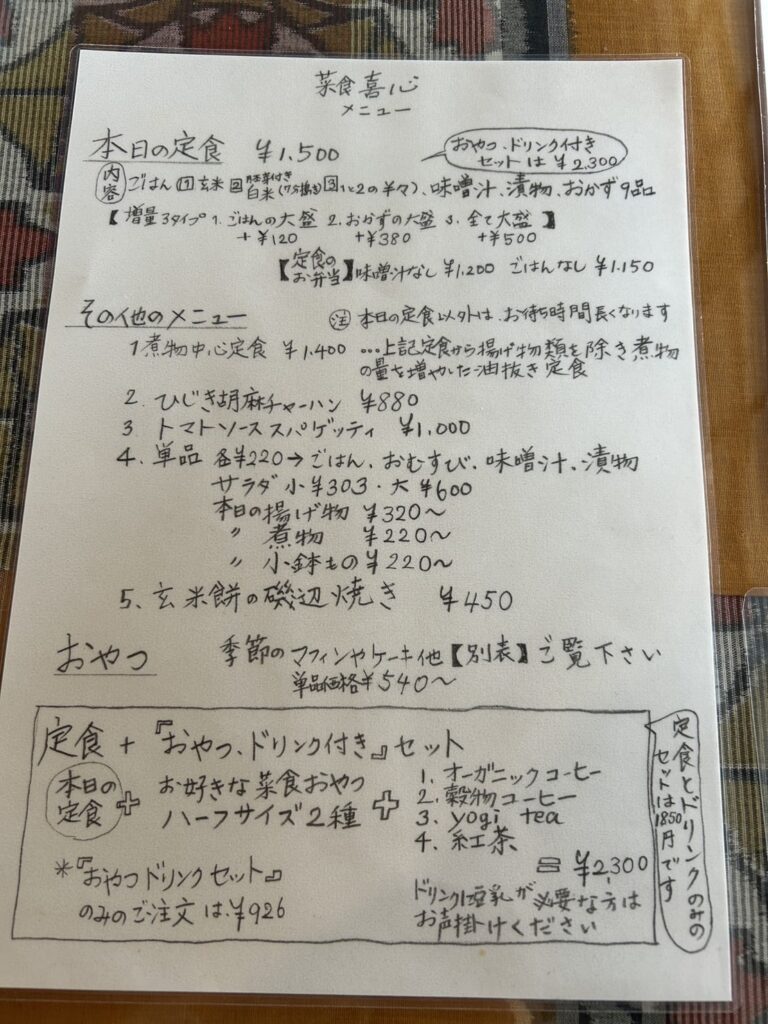 菜食喜心
メニュー
本日の定食 ¥1,500
おやつ、ドリンク付き
セットは¥2,300
内容 ごはん 1 玄米 2 胚芽付き白米(7分搗き) 3 1と2の半々)、味噌汁、漬物、おかず9品
【増量3タイプ 1. ごはんの大盛 2. おかずの大盛 3. 全て大盛】
+¥120 +¥380 +¥500
【定食のお弁当】味噌汁なし¥1,200 ごはんなし ¥1,150
その他のメニュー
注 本日の定食以外は、お待ち時間長くなります
1 煮物中心定食 ¥1,400 …上記定食から揚げ物類を除き煮物
の量を増やした油抜き定食
2. ひじき胡麻チャーハン ¥880
3 トマトソーススパゲッティ ¥1,000
4. 単品 各¥220→ごはん、おむすび、味噌汁、漬物
サラダ 小¥303・大¥600
本日の揚げ物 ¥320〜
〃 煮物 ¥220〜
〃 小鉢もの ¥220〜
5. 玄米餅の磯辺焼き ¥450
おやつ 季節のマフィンやケーキ他【別表】ご覧下さい
単品価格¥540〜
定食+『おやつ、ドリンク付き』セット
本日の
定食
+
お好きな菜食おやつ
ハーフサイズ2種
+
1. オーガニックコーヒー
2. 穀物コーヒー
3. yogi tea
4. 紅茶
=¥2,300
*『おやつドリンクセット』
のみのご注文は、¥926
ドリンクに豆乳が必要な方は
お声掛けください
定食とドリンクのみの
セットは1850円です